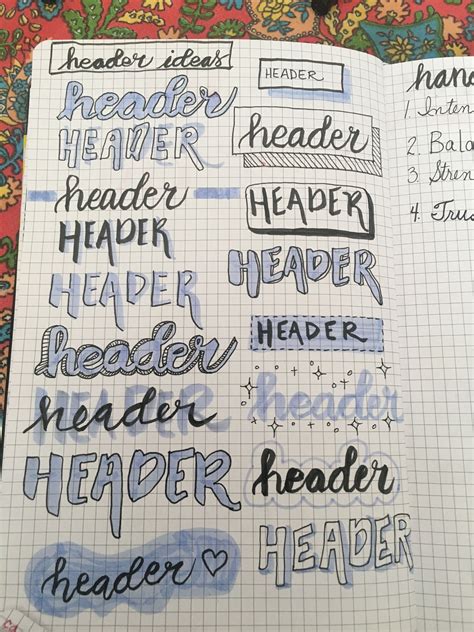 header ideas
header
HEADER
header
HEADER
HEADER
header
header
HEADER
header
HEADER
header
HEADER
HEADER
HEADER
header
header
HEADER
1. Inten
2. Bala
3. Stren
4. Trus